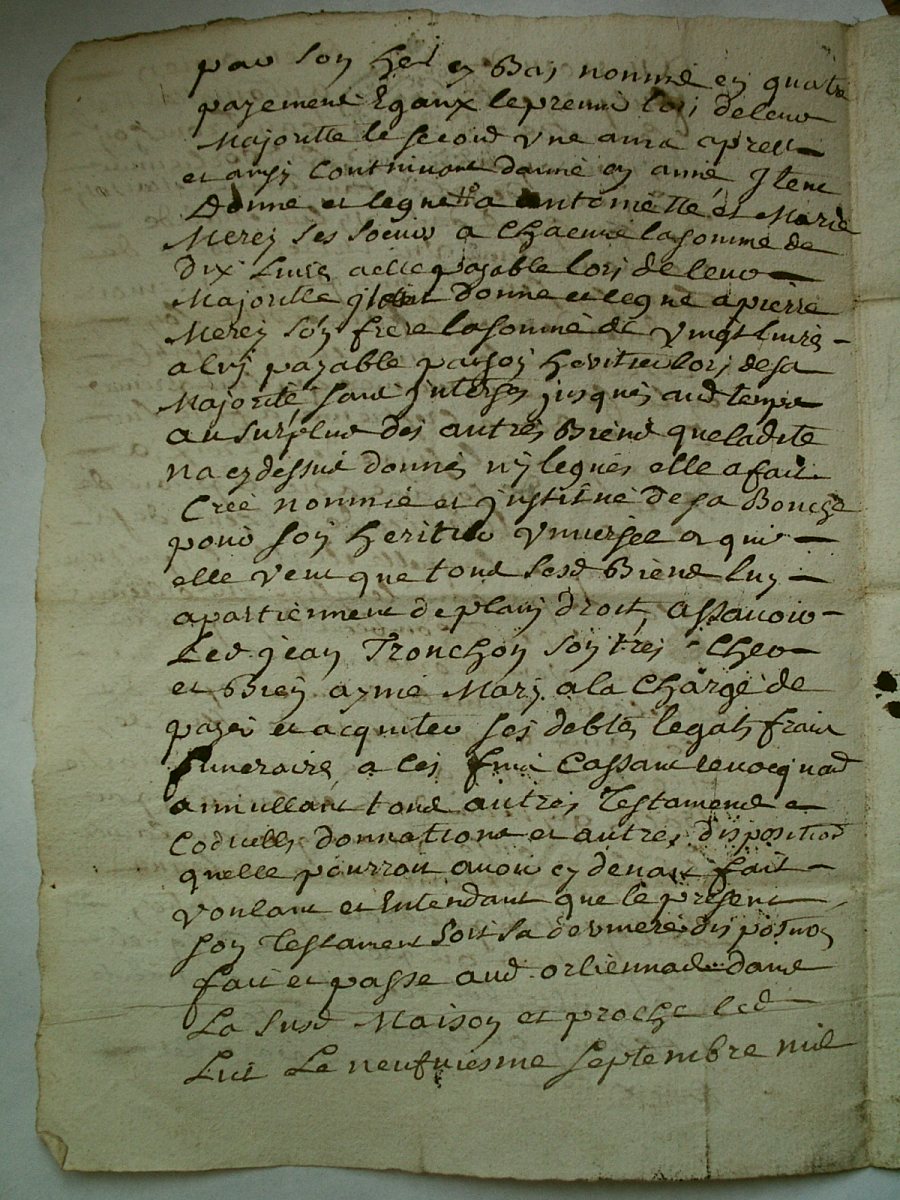 par son her en Bas nommé en quatre
payement Egaux le premier lors de leur
Majoritte le second une anné apres
et ainsy continuant d'anné en anné, Item
Donne et legue a antoinette et Marie
Merey ses soeurs a chacune la somme de
Dix Livres a elle payable lors de leur
Majoritte Item donne et legue a pierre
Merey son frere la somme de vingt livres
a luy payable par son heritier lors de sa
Majorité, sans interest jusques aud temps
au surplus des autres Biens que ladite
na cy dessus donnés ny legués elle a fait
Créé nommé et institué de sa Bouche
pour son heritier universel a qui
elle veut que tous sesd Biens luy
apartiennent de plain droit, assavoir
Led jean Tronchon son tres cher
et Bien aymé Mary a la charge de
payer et acquiter ses debtes legats frais
funeraires a ces fins Cassant revocquant
annullant tous autres Testaments
Codicilles donnations et autres dispositions
quelle pourroit avoir cy devant fait
voulant et Entendant que le present
son Testament soit sa derniere disposition
fait et passe aud orliennas dans
La susd Maison et proche led
Lict Le neufviesme septembre mil